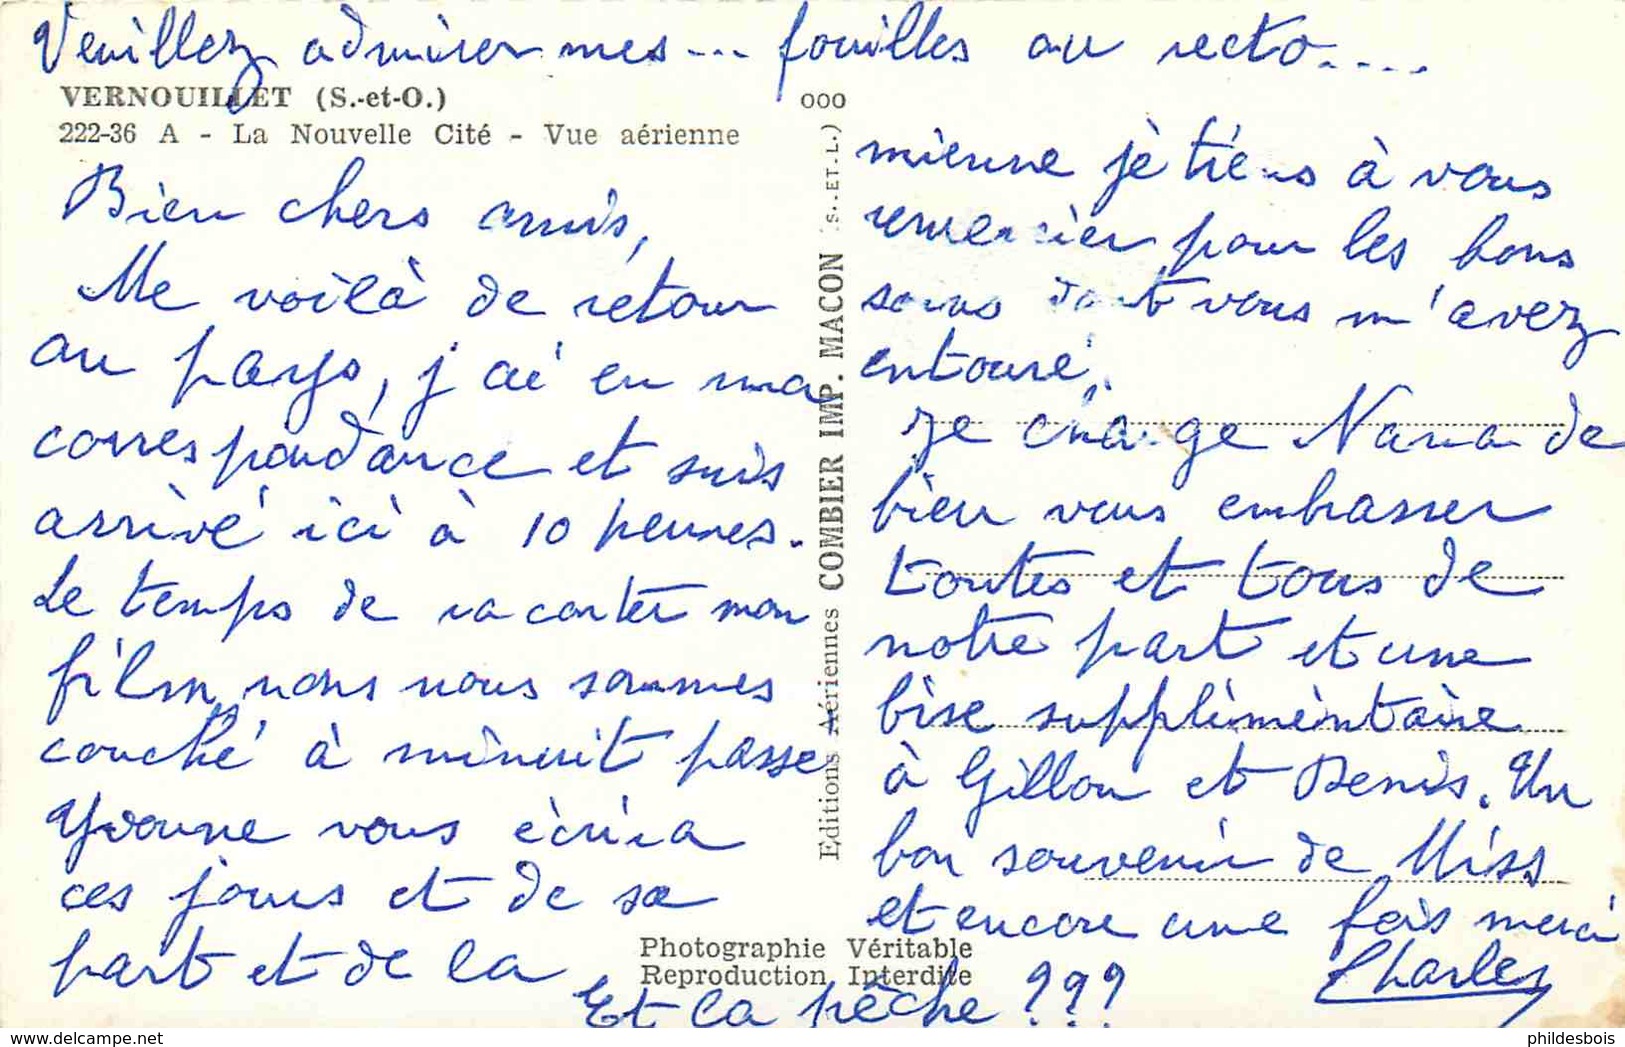 Veuillez admirer mes... fouilles au recto....
VERNOUILLET (S.-et-O.)
222-36 A - La Nouvelle Cité - Vue aérienne
Bien chers amis,
Me voilà de retour
au pays, j'ai eu ma
correspondance et suis
arrivé ici à 10 heures.
Le temps de raconter mon
film nous nous sommes
couché à minuit passé
Yvonne vous écrira
ces jours et de sa
part et de la
000
Editions Aériennes COMBIER IMP. MACON (S.-ET-L.)
mienne je tiens à vous
remercier pour les bons
soins dont vous m'avez
entouré.
Je charge Nana de
bien vous embrasser
toutes et tous de
notre part et une
bise supplémentaire
à Gillou et Denis. Un
bon souvenir de Miss
et encore une fois merci
Charles
Photographie Véritable
Reproduction Interdite
Et la pêche ???
www.delcampe.net
phildesbois